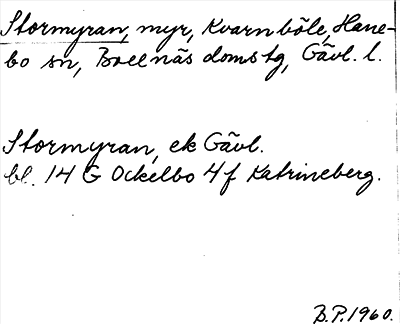 Stormyran, myr, Kvarnböle, Hane-
bo sn, Bollnäs domstg, Gävl. l.
Stormyran, ek Gävl.
bl. 14 G Ockelbo 4f Katrineberg.
B.P. 1960.